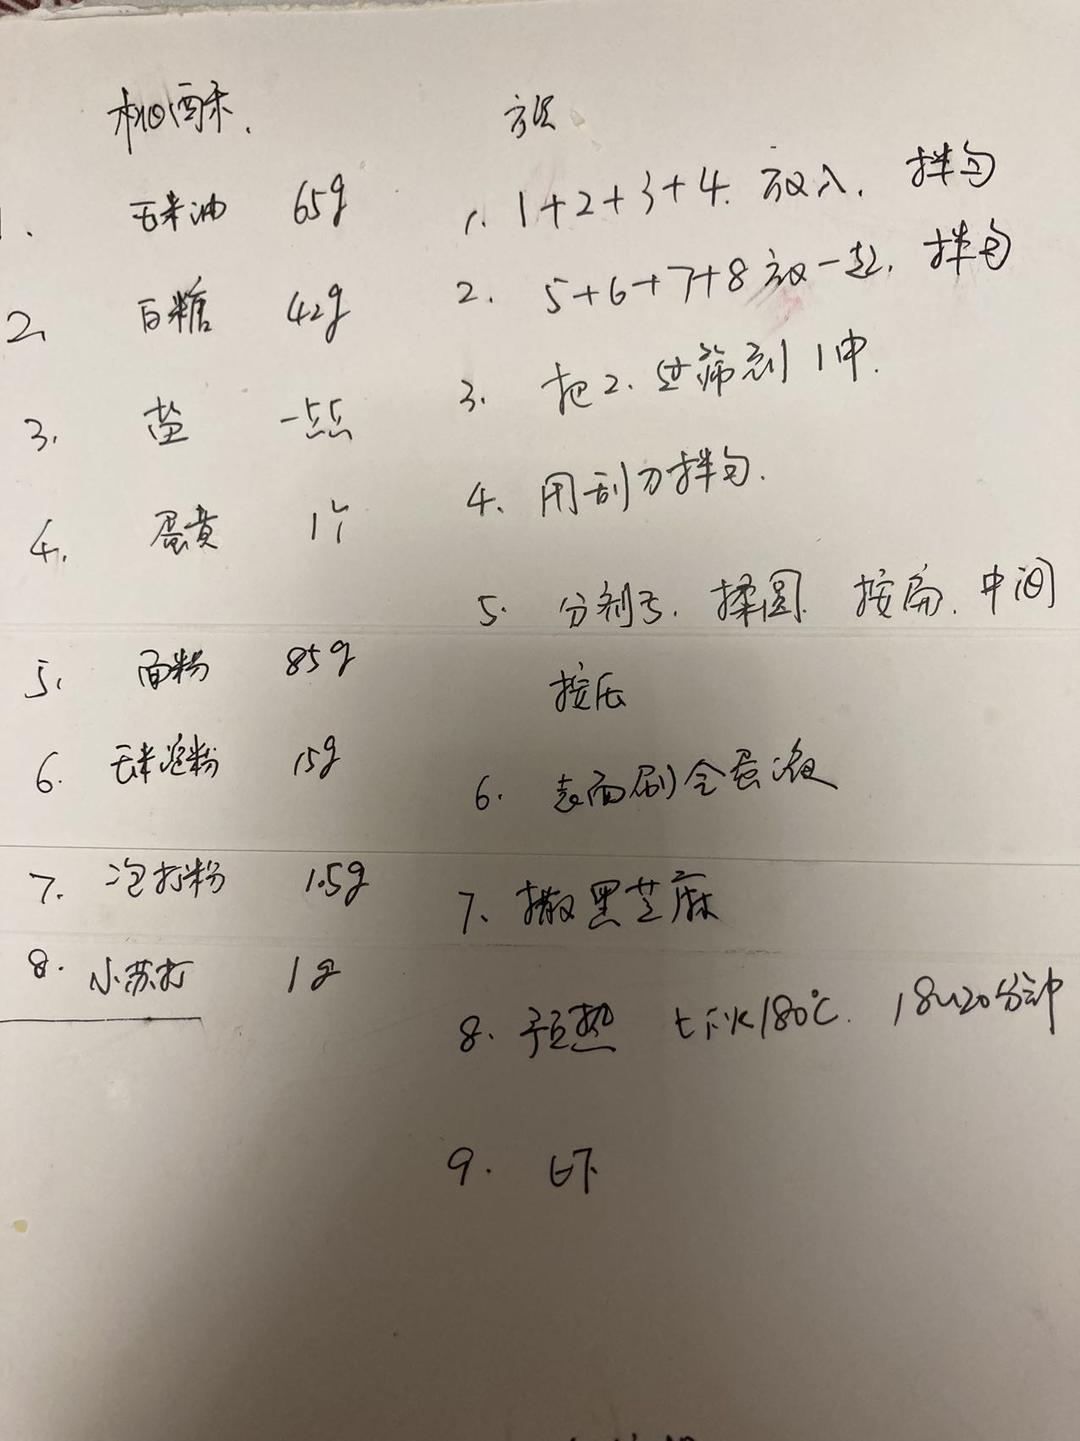 桃酥.
1. 玉米油 65g
2. 白糖 42g
3. 盐 一点点
4. 蛋黄 1个
5. 面粉 85g
6. 玉米淀粉 15g
7. 泡打粉 1.5g
8. 小苏打 1g
方法
1. 1+2+3+4. 放入. 拌匀
2. 5+6+7+8 放一起. 拌匀
3. 把2. 过筛到1中.
4. 用刮刀拌匀.
5. 分剂子. 揉圆. 按扁. 中间
按压
6. 表面刷全蛋液
7. 撒黑芝麻
8. 预热 上下火180℃. 18~20分钟
9. 上下